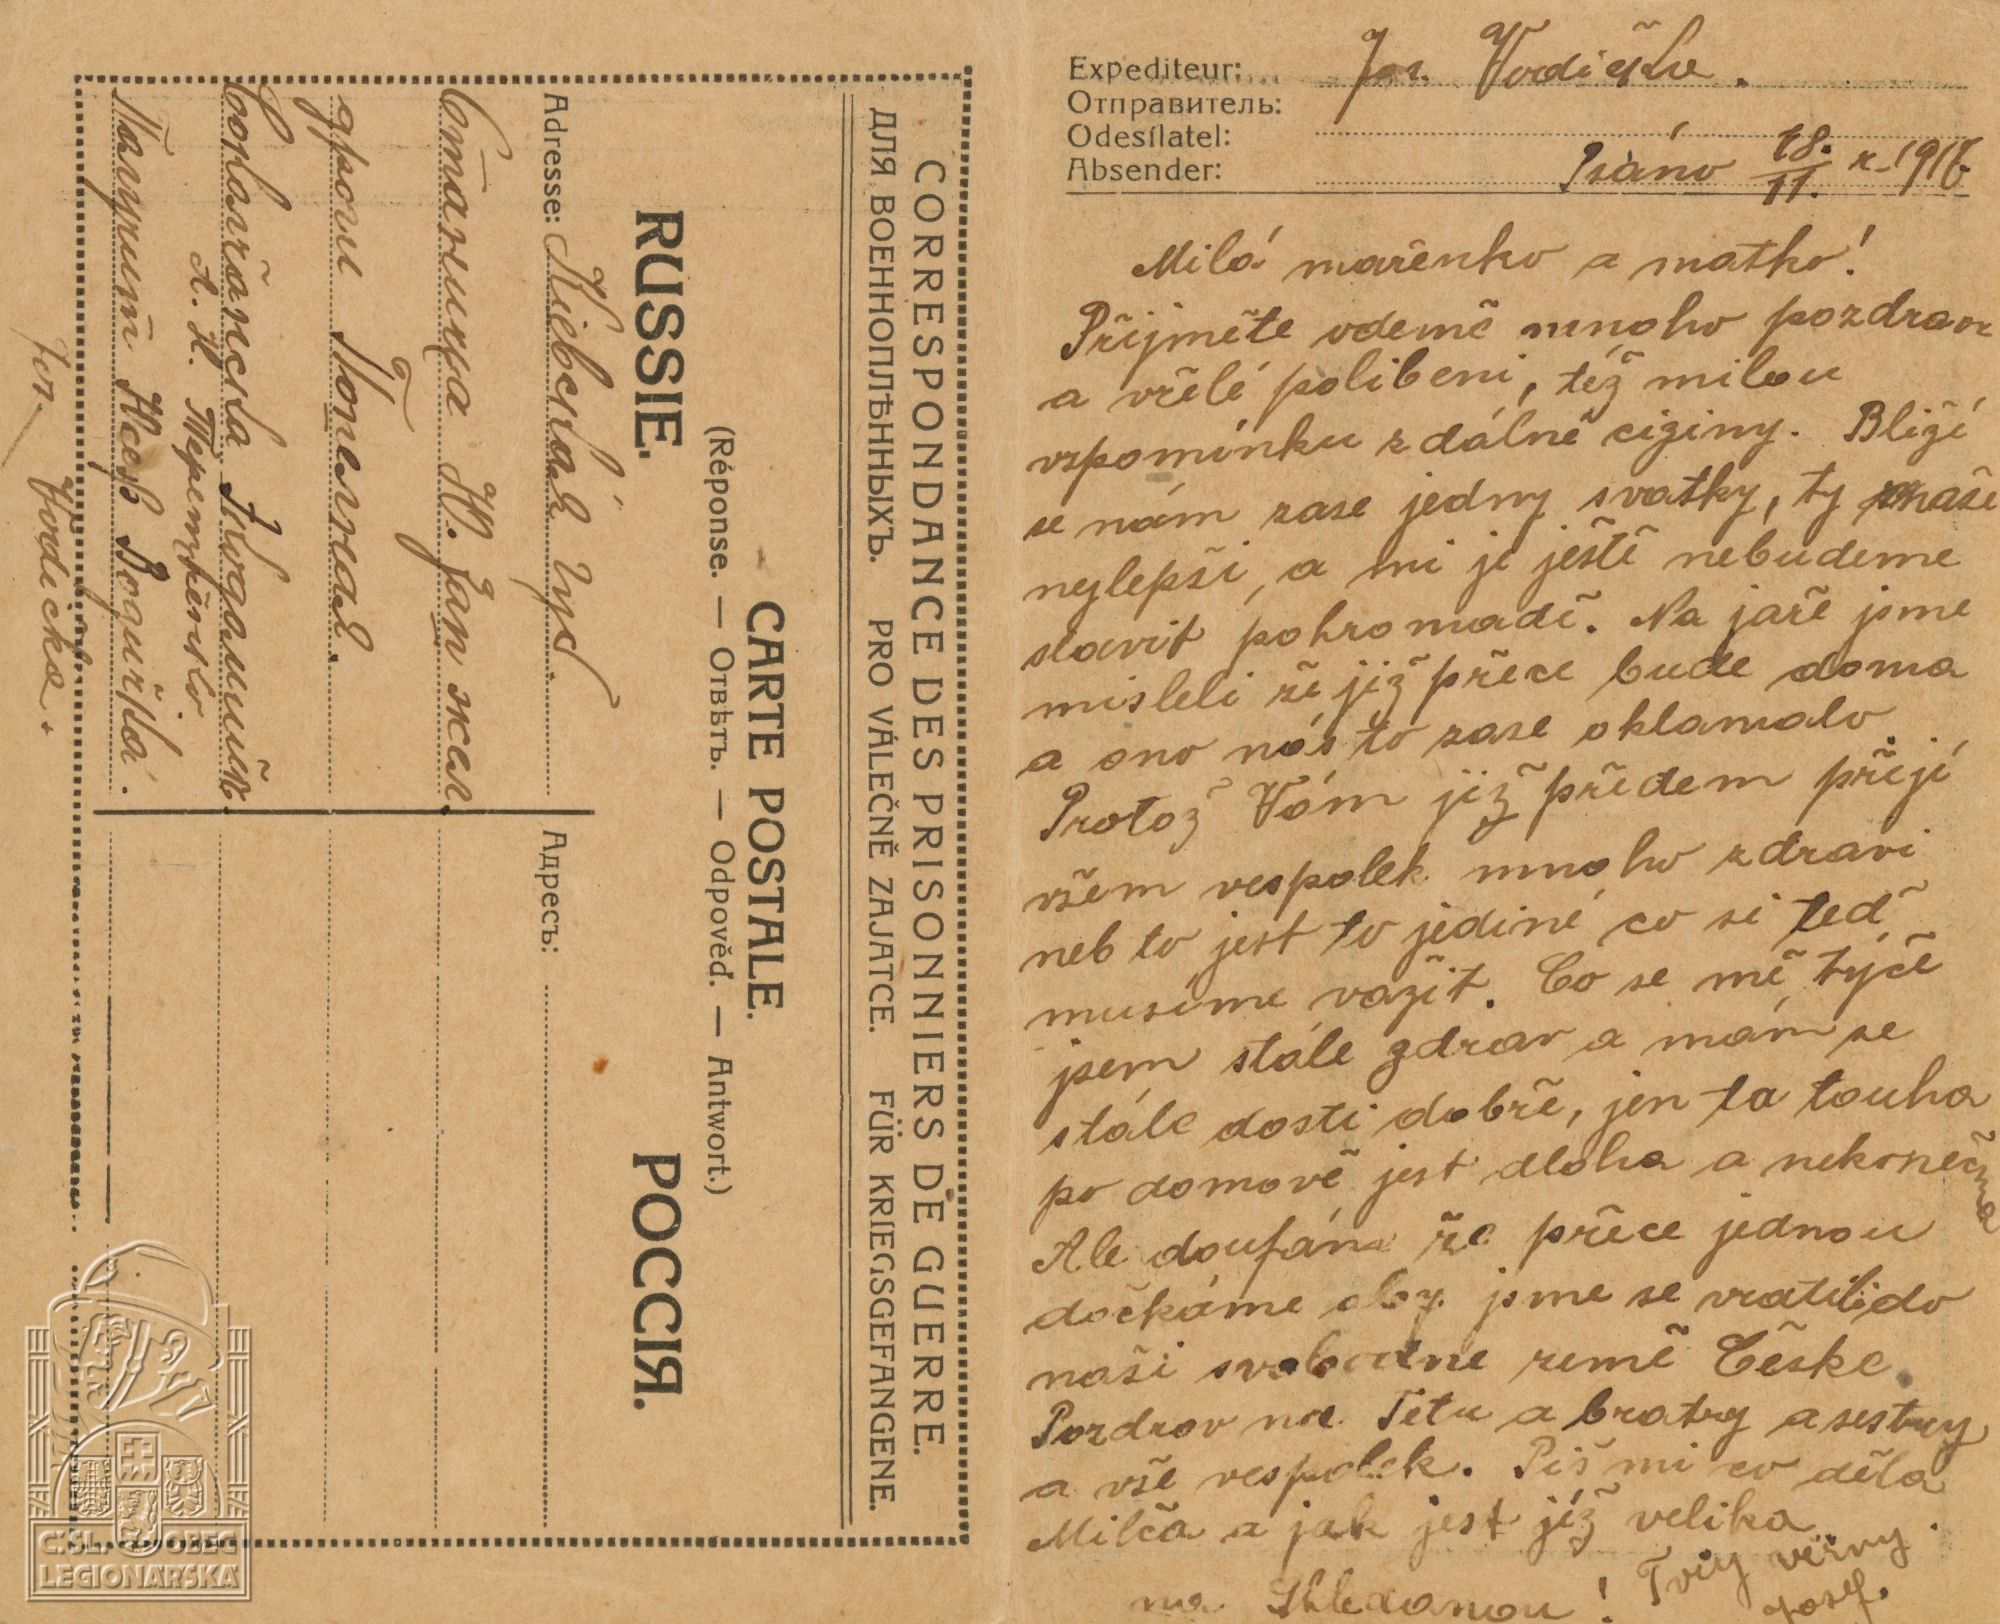 CORRESPONDANCE DES PRISONNIERS DE GUERRE.
ДЛЯ ВОЕННОПЛѢННЫХЪ. PRO VÁLEČNĚ ZAJATCE. FÜR KRIEGSGEFANGENE.
CARTE POSTALE.
(Réponse. — Отвѣтъ. — Odpověď. — Antwort.)
RUSSIE. РОССІЯ.
Adresse: Кіевская губ.
Станица Ю. Зап жел.
дроги Тетіевъ.
А. Н. Терещенко
Jos. Vodička.
Адресъ:
Expediteur: Jos. Vodička.
Отправитель:
Odesílatel:
Absender: Psáno 18./11. r. 1916
Milá mařenko a matko!
Přijměte odemě mnoho pozdravu
a vřelé políbeni, též milou
vzpomínku z dálné ciziny. Bliží
se nám zase jedny svatky, ty naše
nejlepši, a mi je ještě nebudeme
slavit pohromadě. Na jaře jsme
misleli že již přece bude doma
a ono nás to zase oklamalo.
Protož Vám již předem přeji
všem vespolek mnoho zdravi
neb to jest to jediné co si teď
musíme vážit. Co se mě týče
jsem stále zdrav a mám se
stále dosti dobře, jen ta touha
po domově jest dloha a nekonečna
Ale doufám že přece jednou
dočkáme aby jsme se vratili do
naši svobodne země Česke.
Pozdrav na Tetu a bratry a sestry
a vše vespolek. Piš mi co děla
Milča a jak jest již velika
na Shledanou! Tvůj věrny
Josef.
ČSL. OBEC
LEGIONÁŘSKÁ